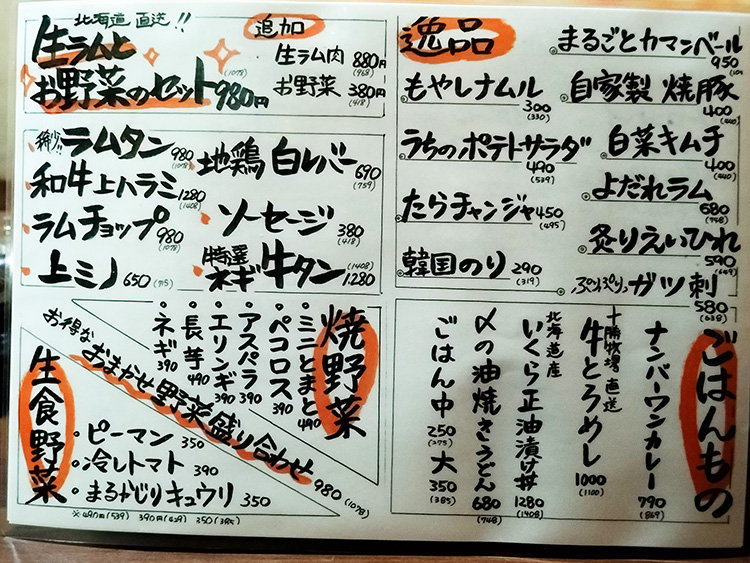 北海道直送!!
生ラムと
お野菜のセット 980円 (1078)
追加
生ラム肉 880円 (968)
お野菜 380円 (418)
稀少!! ラムタン 980 (1078)
和牛上ハラミ 1280 (1408)
ラムチョップ 980 (1078)
上ミノ 650 (715)
地鶏白レバー 690 (759)
ソーセージ 380 (418)
特選 ネギ牛タン 1280 (1408)
逸品
まるごとカマンベール 950
もやしナムル 300 (330)
自家製 焼豚 400 (440)
うちのポテトサラダ 490 (539)
白菜キムチ 400 (440)
たらチャンジャ 450 (495)
よだれラム 680 (748)
韓国のり 290 (319)
炙りえいひれ 590 (649)
ぷりぷりっガツ刺 580 (638)
焼野菜
・ミニとまと 490
・ペコロス 390
・アスパラ 390
・エリンギ 390
・長芋 490
・ネギ 390
お得な
おまかせ野菜盛り合わせ 980 (1078)
生食野菜
・ピーマン 350
・冷しトマト 390
・まるかじりキュウリ 350
※490円(539) 390円(429) 350(385)
ごはんもの
ナンバーワンカレー 790 (869)
十勝牧場直送
牛とろめし 1000 (1100)
北海道産
いくら正油漬け丼 1280 (1408)
〆の油焼きうどん 680 (748)
ごはん中 250 (275) 大 350 (385)